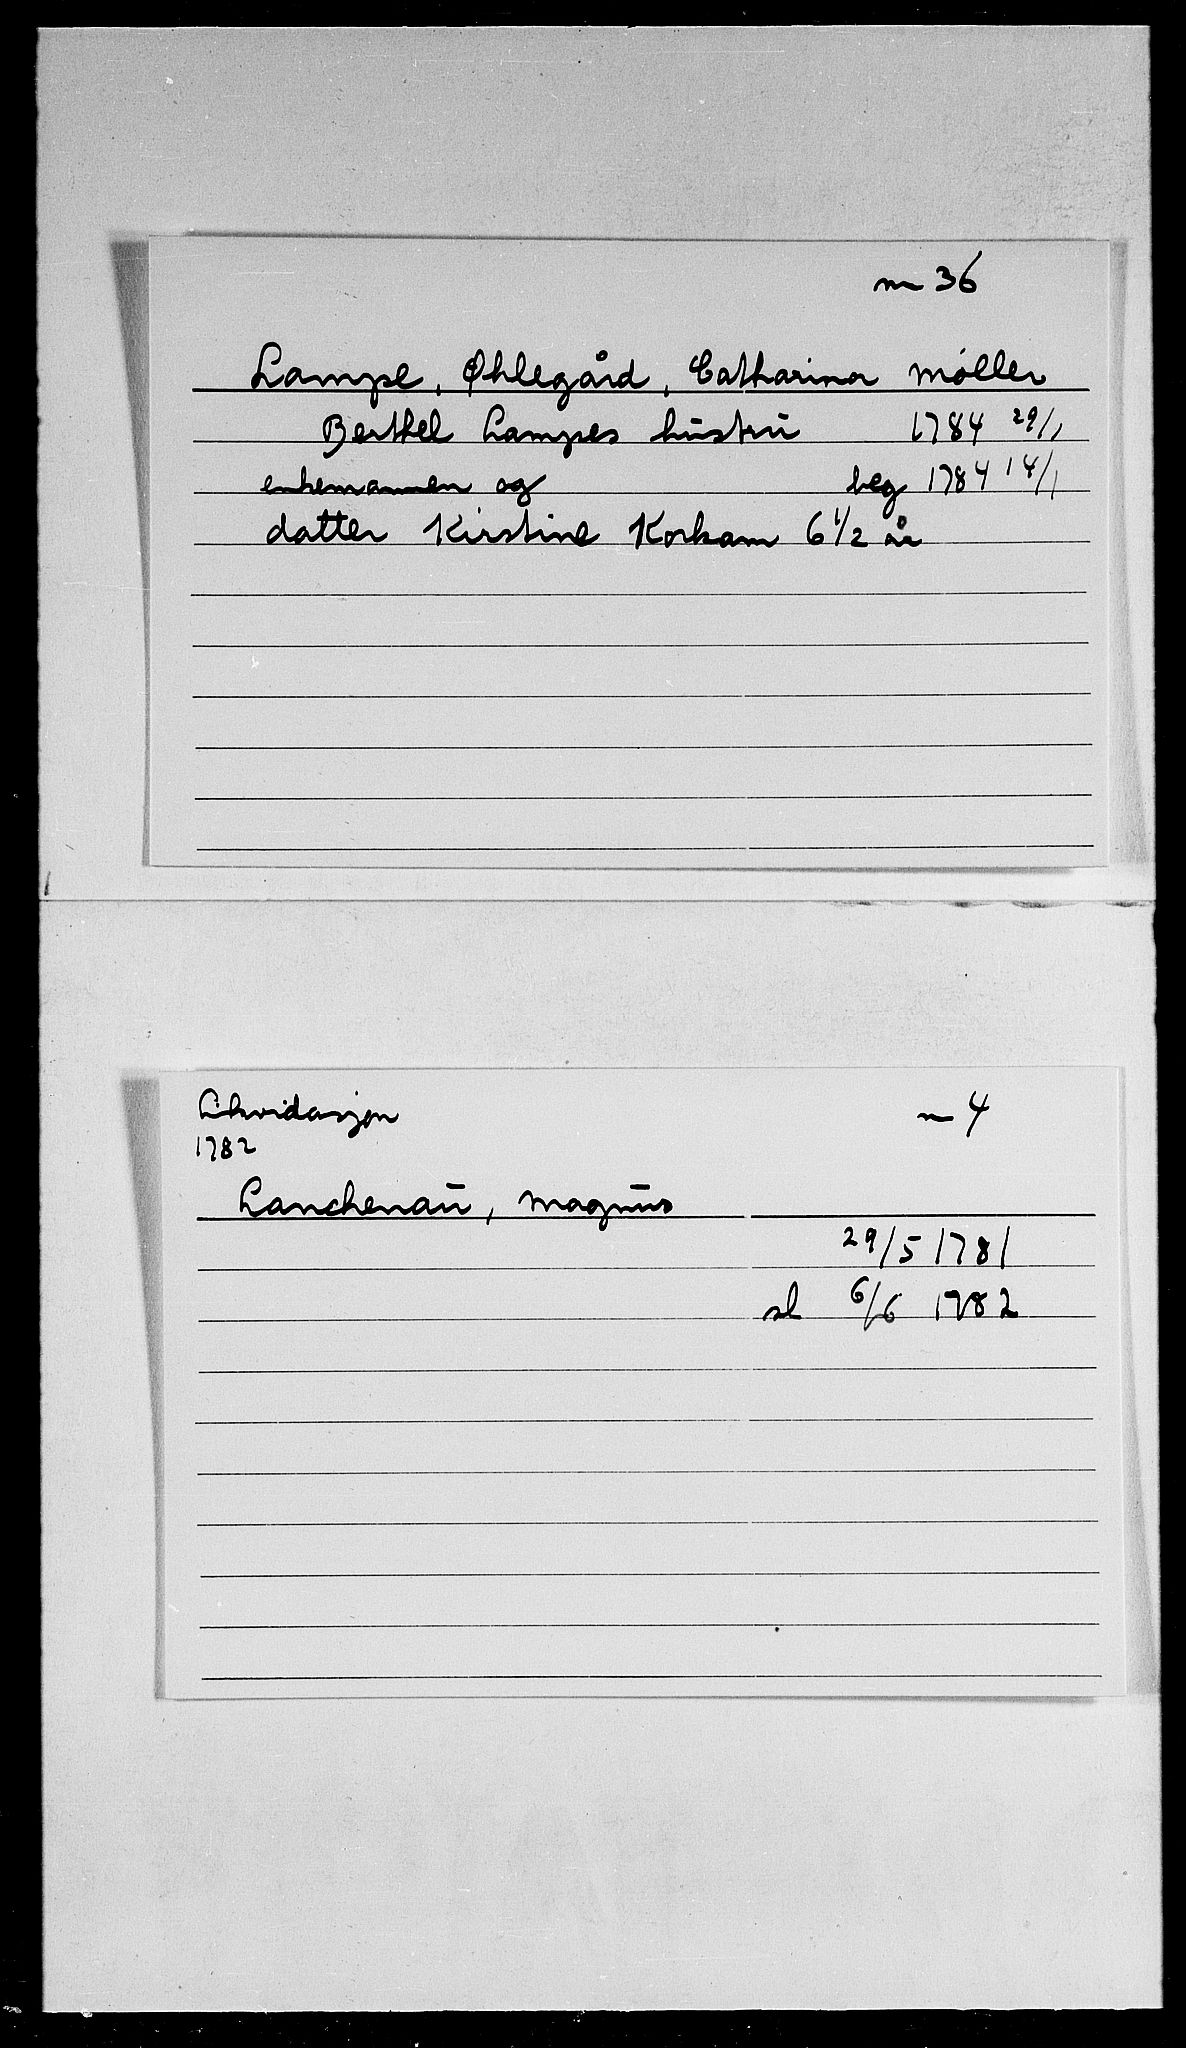 nr 36
Lampe, Øhlegård, Catharina Møller
Berthel Lampes hustru 1784 29/1
enkemannen og beg 1784 14/1
datter Kirstine Korham 6 1/2 år
Likvidasjon nr 4
1782
Lanchenau, Magnus
29/5 1781
sl 6/6 1782